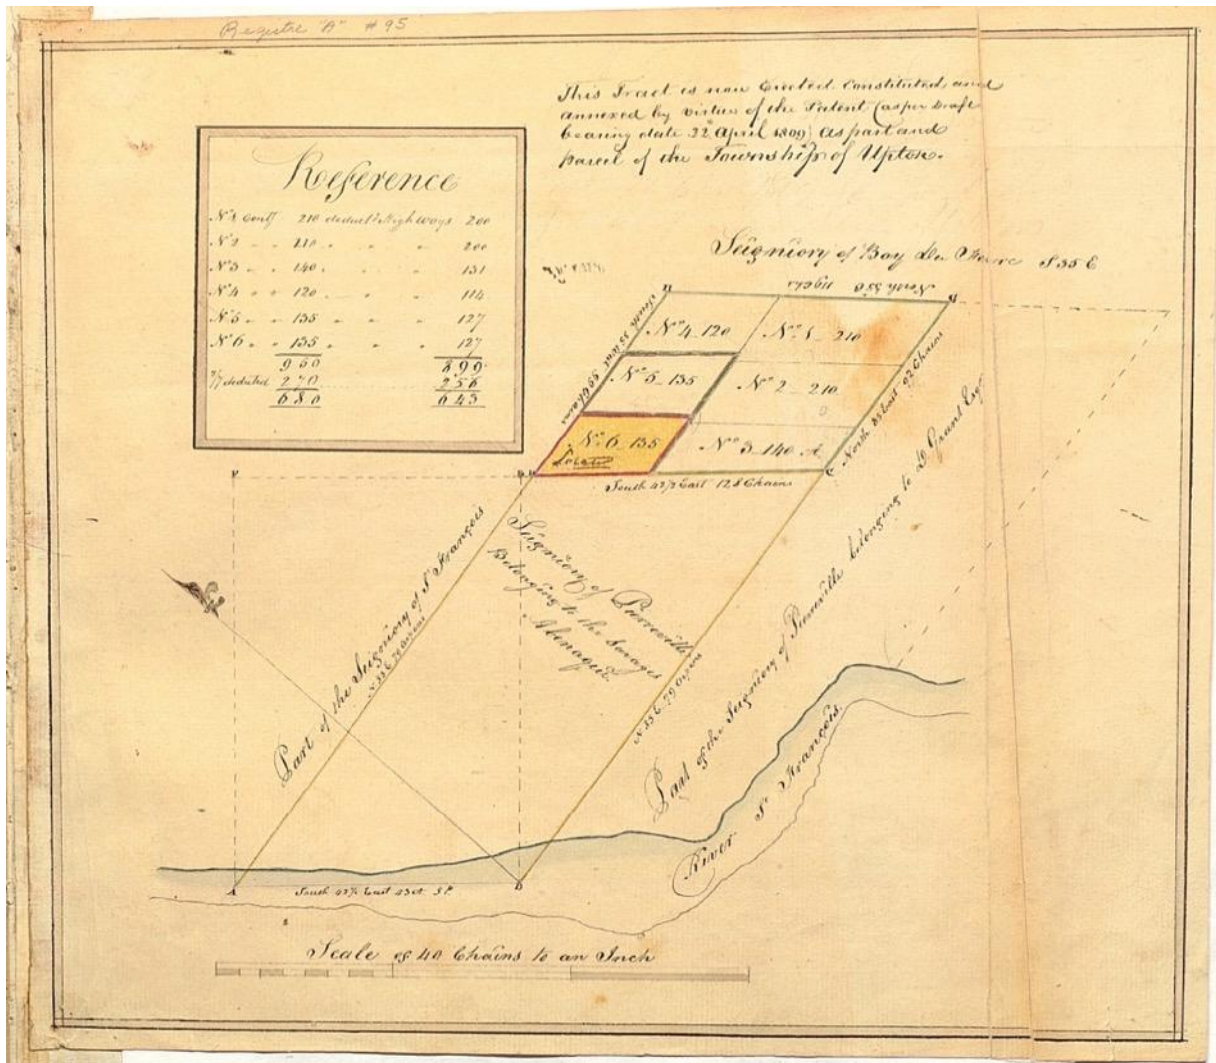 Registre "A" #95
This Tract is now Erected Constituted and
annexed by virtue of the Patent (as per Draft
bearing date 22d April 1809) as part and
parcel of the Township of Upton.
Reference
No 1 Contg 210 deduct Highways 200
No 2 - - 210 - " " 200
No 3 - - 140 - " " 131
No 4 - - 120 - " " 114
No 5 - - 135 - " " 127
No 6 - - 135 " " 127
950 899
2/7 deducted 270 256
680 643
Seigniory of Bay De Febvre S 35 E
North 35
South 35 West 99 Chains
No 4_120
No 1_210
No 5_135
No 2_210
No 6_135
No 3_140 A
North 35 East 92 Chains
South 42½ East 128 Chains
F
C
Part of the Seigniory of St François
N 35 E 79 Arpens
Seigniory of Pierreville
Belonging to the Savages
Abenaqui
N 35 E 79 Arpens
Part of the Seigniory of Pierreville belonging to D. Grant Esqr
River St François
A
South 42½ East
D
Scale of 40 Chains to an Inch